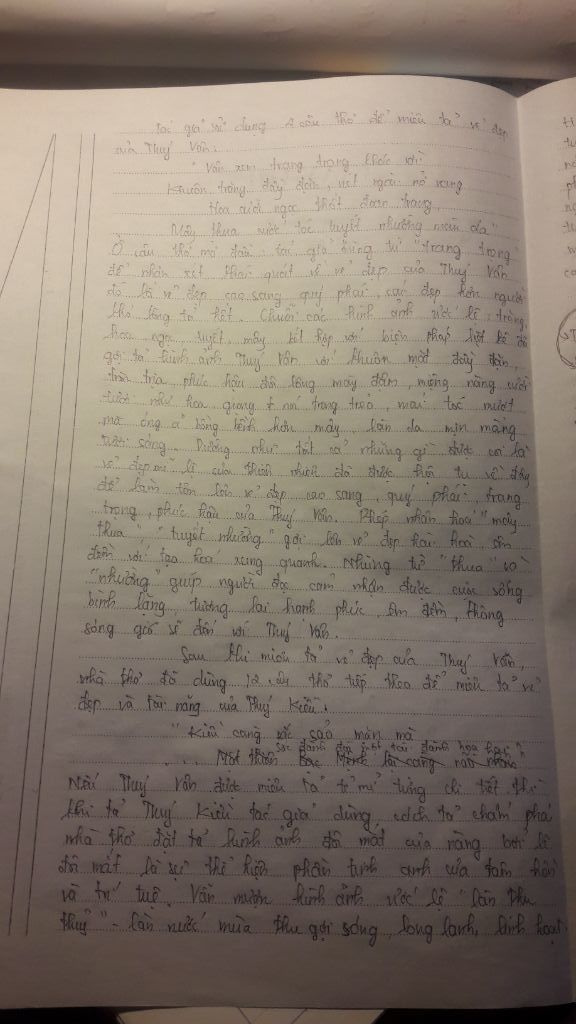 tác giả sử dụng 4 câu thơ để miêu tả vẻ đẹp
của Thúy Vân.
"Vân xem trang trọng khác vời
Khuôn trăng đầy đặn, nét ngài nở nang
Hoa cười ngọc thốt đoan trang
Mây thua nước tóc tuyết nhường màu da"
Ở câu thơ mở đầu: tác giả dùng từ "trang trọng"
để nhận xét khái quát về vẻ đẹp của Thúy Vân
đó là vẻ đẹp cao sang quý phái, cái đẹp hơn người
khó lòng tả hết. Chuỗi các hình ảnh ước lệ: trăng,
hoa ngọc, tuyết, mây kết hợp với biện pháp liệt kê đã
gợi tả hình ảnh Thúy Vân với khuôn mặt đầy đặn,
tròn trịa, phúc hậu đôi lông mày đậm, miệng nàng cười
tươi như hoa, giọng nói trong trẻo, mái tóc mượt
mà óng ả bồng bềnh hơn mây, làn da mịn màng
tươi sáng. Dường như tất cả những gì được coi là
vẻ đẹp mĩ lệ của thiên nhiên đã được hội tụ về đây
để làm tôn lên vẻ đẹp cao sang, quý phái, trang
trọng, phúc hậu của Thúy Vân. Phép nhân hoá "mây
thua", "tuyết nhường" gợi lên vẻ đẹp hài hoà, êm
đềm với tạo hoá xung quanh. Những từ "thua" và
"nhường" giúp người đọc cảm nhận được cuộc sống
bình lặng, tương lai hạnh phúc, êm đềm, không
sóng gió sẽ đến với Thúy Vân.
Sau khi miêu tả vẻ đẹp của Thúy Vân,
nhà thơ đã dùng 12 câu thơ tiếp theo để miêu tả vẻ
đẹp và tài năng của Thúy Kiều.
"Kiều càng sắc sảo mặn mà
sắc đành đòi một tài đành hoạ hai"
... Một thiên Bạc Mệnh lại càng não nhân
Nếu Thúy Vân được miêu tả tỉ mỉ từng chi tiết thì
khi tả Thúy Kiều tác giả dùng cách tả chấm phá
nhà thơ đặc tả hình ảnh đôi mắt của nàng bởi lẽ
đôi mắt là sự thể hiện phần tinh anh của tâm hồn
và trí tuệ. Vẫn mượn hình ảnh ước lệ "làn thu
thuỷ" - làn nước mùa thu gợn sóng, long lanh, linh hoạt